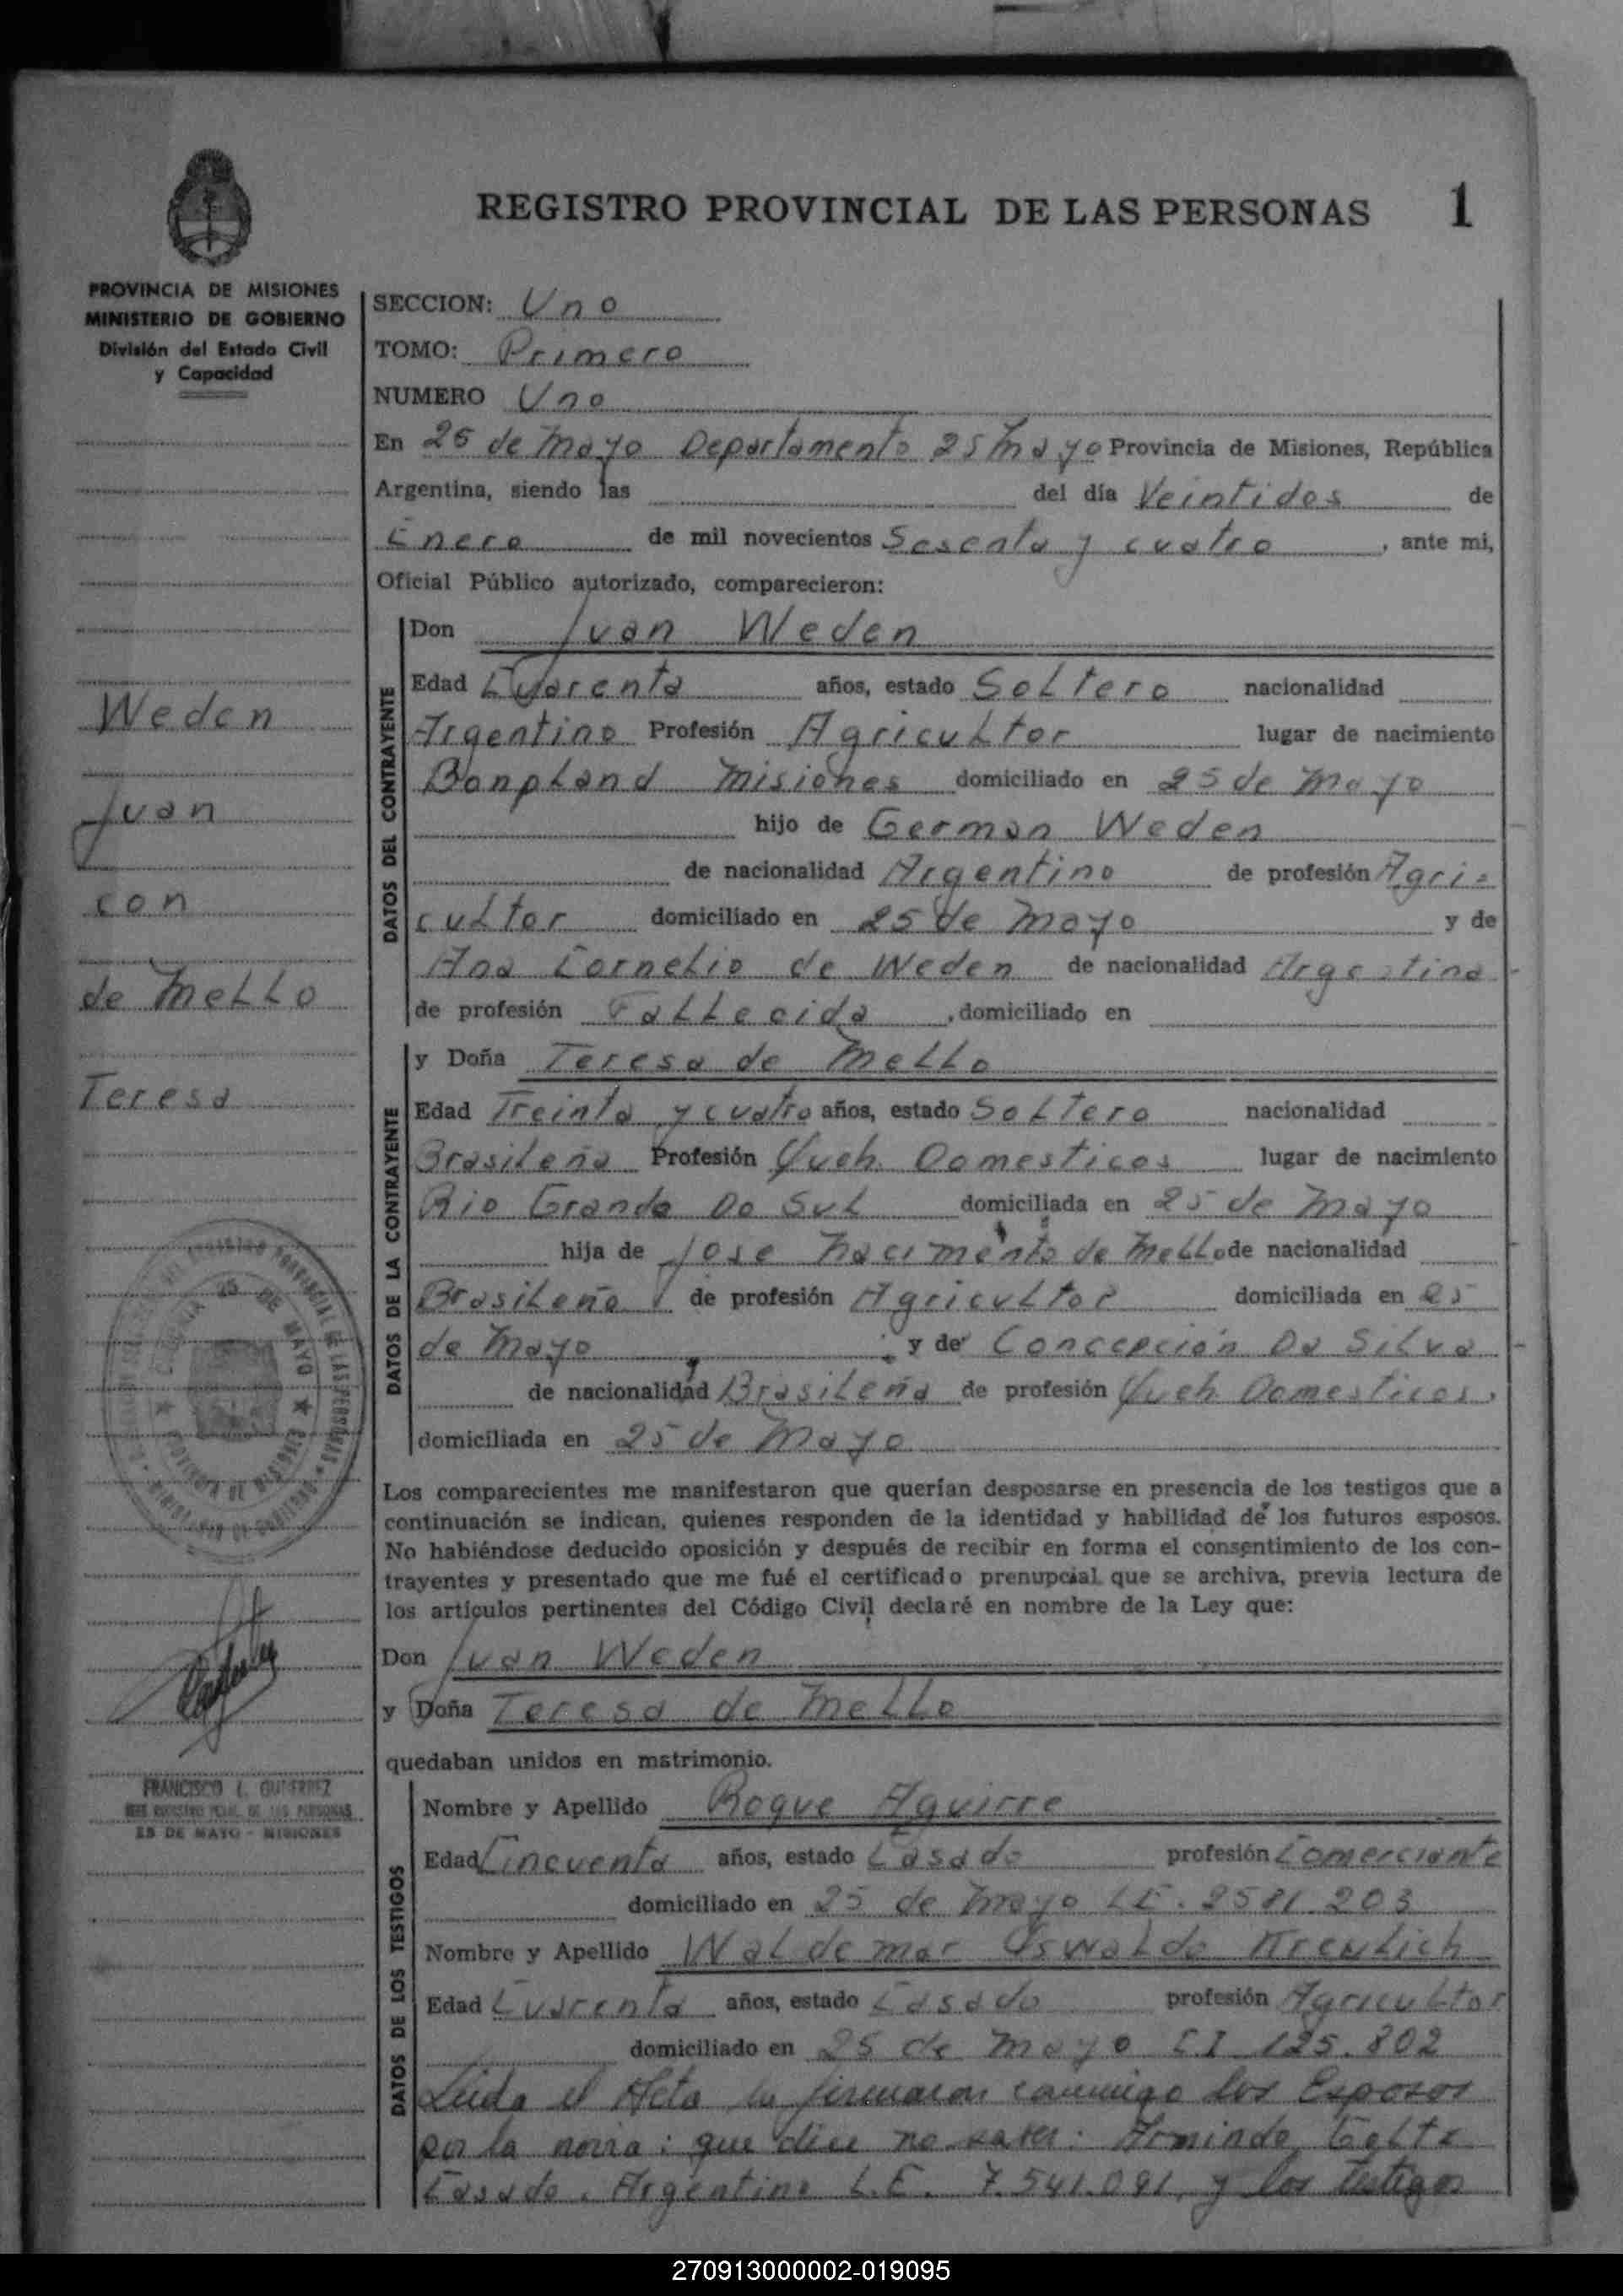 REGISTRO PROVINCIAL DE LAS PERSONAS 1
PROVINCIA DE MISIONES
MINISTERIO DE GOBIERNO
División del Estado Civil
y Capacidad
Weden
Juan
con
de Mello
Teresa
FRANCISCO
25 DE MAYO - MISIONES
SECCION: Uno
TOMO: Primero
NUMERO Uno
En 25 de Mayo Departamento 25 Mayo Provincia de Misiones, República
Argentina, siendo las del día Veintidos de
Enero de mil novecientos Sesenta y cuatro, ante mi,
Oficial Público autorizado, comparecieron:
DATOS DEL CONTRAYENTE
Don Juan Weden
Edad Cuarenta años, estado Soltero nacionalidad
Argentino Profesión Agricultor lugar de nacimiento
Bonpland Misiones domiciliado en 25 de Mayo
hijo de German Weden
de nacionalidad Argentino de profesión Agri-
cultor domiciliado en 25 de Mayo y de
Ana Cornelio de Weden de nacionalidad Argentina
de profesión Fallecida, domiciliado en
DATOS DE LA CONTRAYENTE
y Doña Teresa de Mello
Edad Treinta y cuatro años, estado Soltero nacionalidad
Brasileña Profesión Queh. Domesticos lugar de nacimiento
Rio Grande Do Sul domiciliada en 25 de Mayo
hija de Jose Nacimento de Mello de nacionalidad
Brasileño de profesión Agricultor domiciliada en 25
de Mayo y de Concepción Da Silva
de nacionalidad Brasileña de profesión Queh. Domesticos,
domiciliada en 25 de Mayo
Los comparecientes me manifestaron que querían desposarse en presencia de los testigos que a
continuación se indican, quienes responden de la identidad y habilidad de los futuros esposos.
No habiéndose deducido oposición y después de recibir en forma el consentimiento de los con-
trayentes y presentado que me fué el certificado prenupcial que se archiva, previa lectura de
los artículos pertinentes del Código Civil declaré en nombre de la Ley que:
Don Juan Weden
y Doña Teresa de Mello
quedaban unidos en matrimonio.
DATOS DE LOS TESTIGOS
Nombre y Apellido Roque Aguirre
Edad Cincuenta años, estado Casado profesión Comerciante
domiciliado en 25 de Mayo LE. 2581.203
Nombre y Apellido Waldemar Oswaldo
Edad Cuarenta años, estado Casado profesión Agricultor
domiciliado en 25 de Mayo CI 125.802
Leida el Acta la firmaron conmigo los Esposos
por la novia: que dice no saber: Armindo
Casado. Argentino L.E. 7.541.091, y los testigos
270913000002-019095